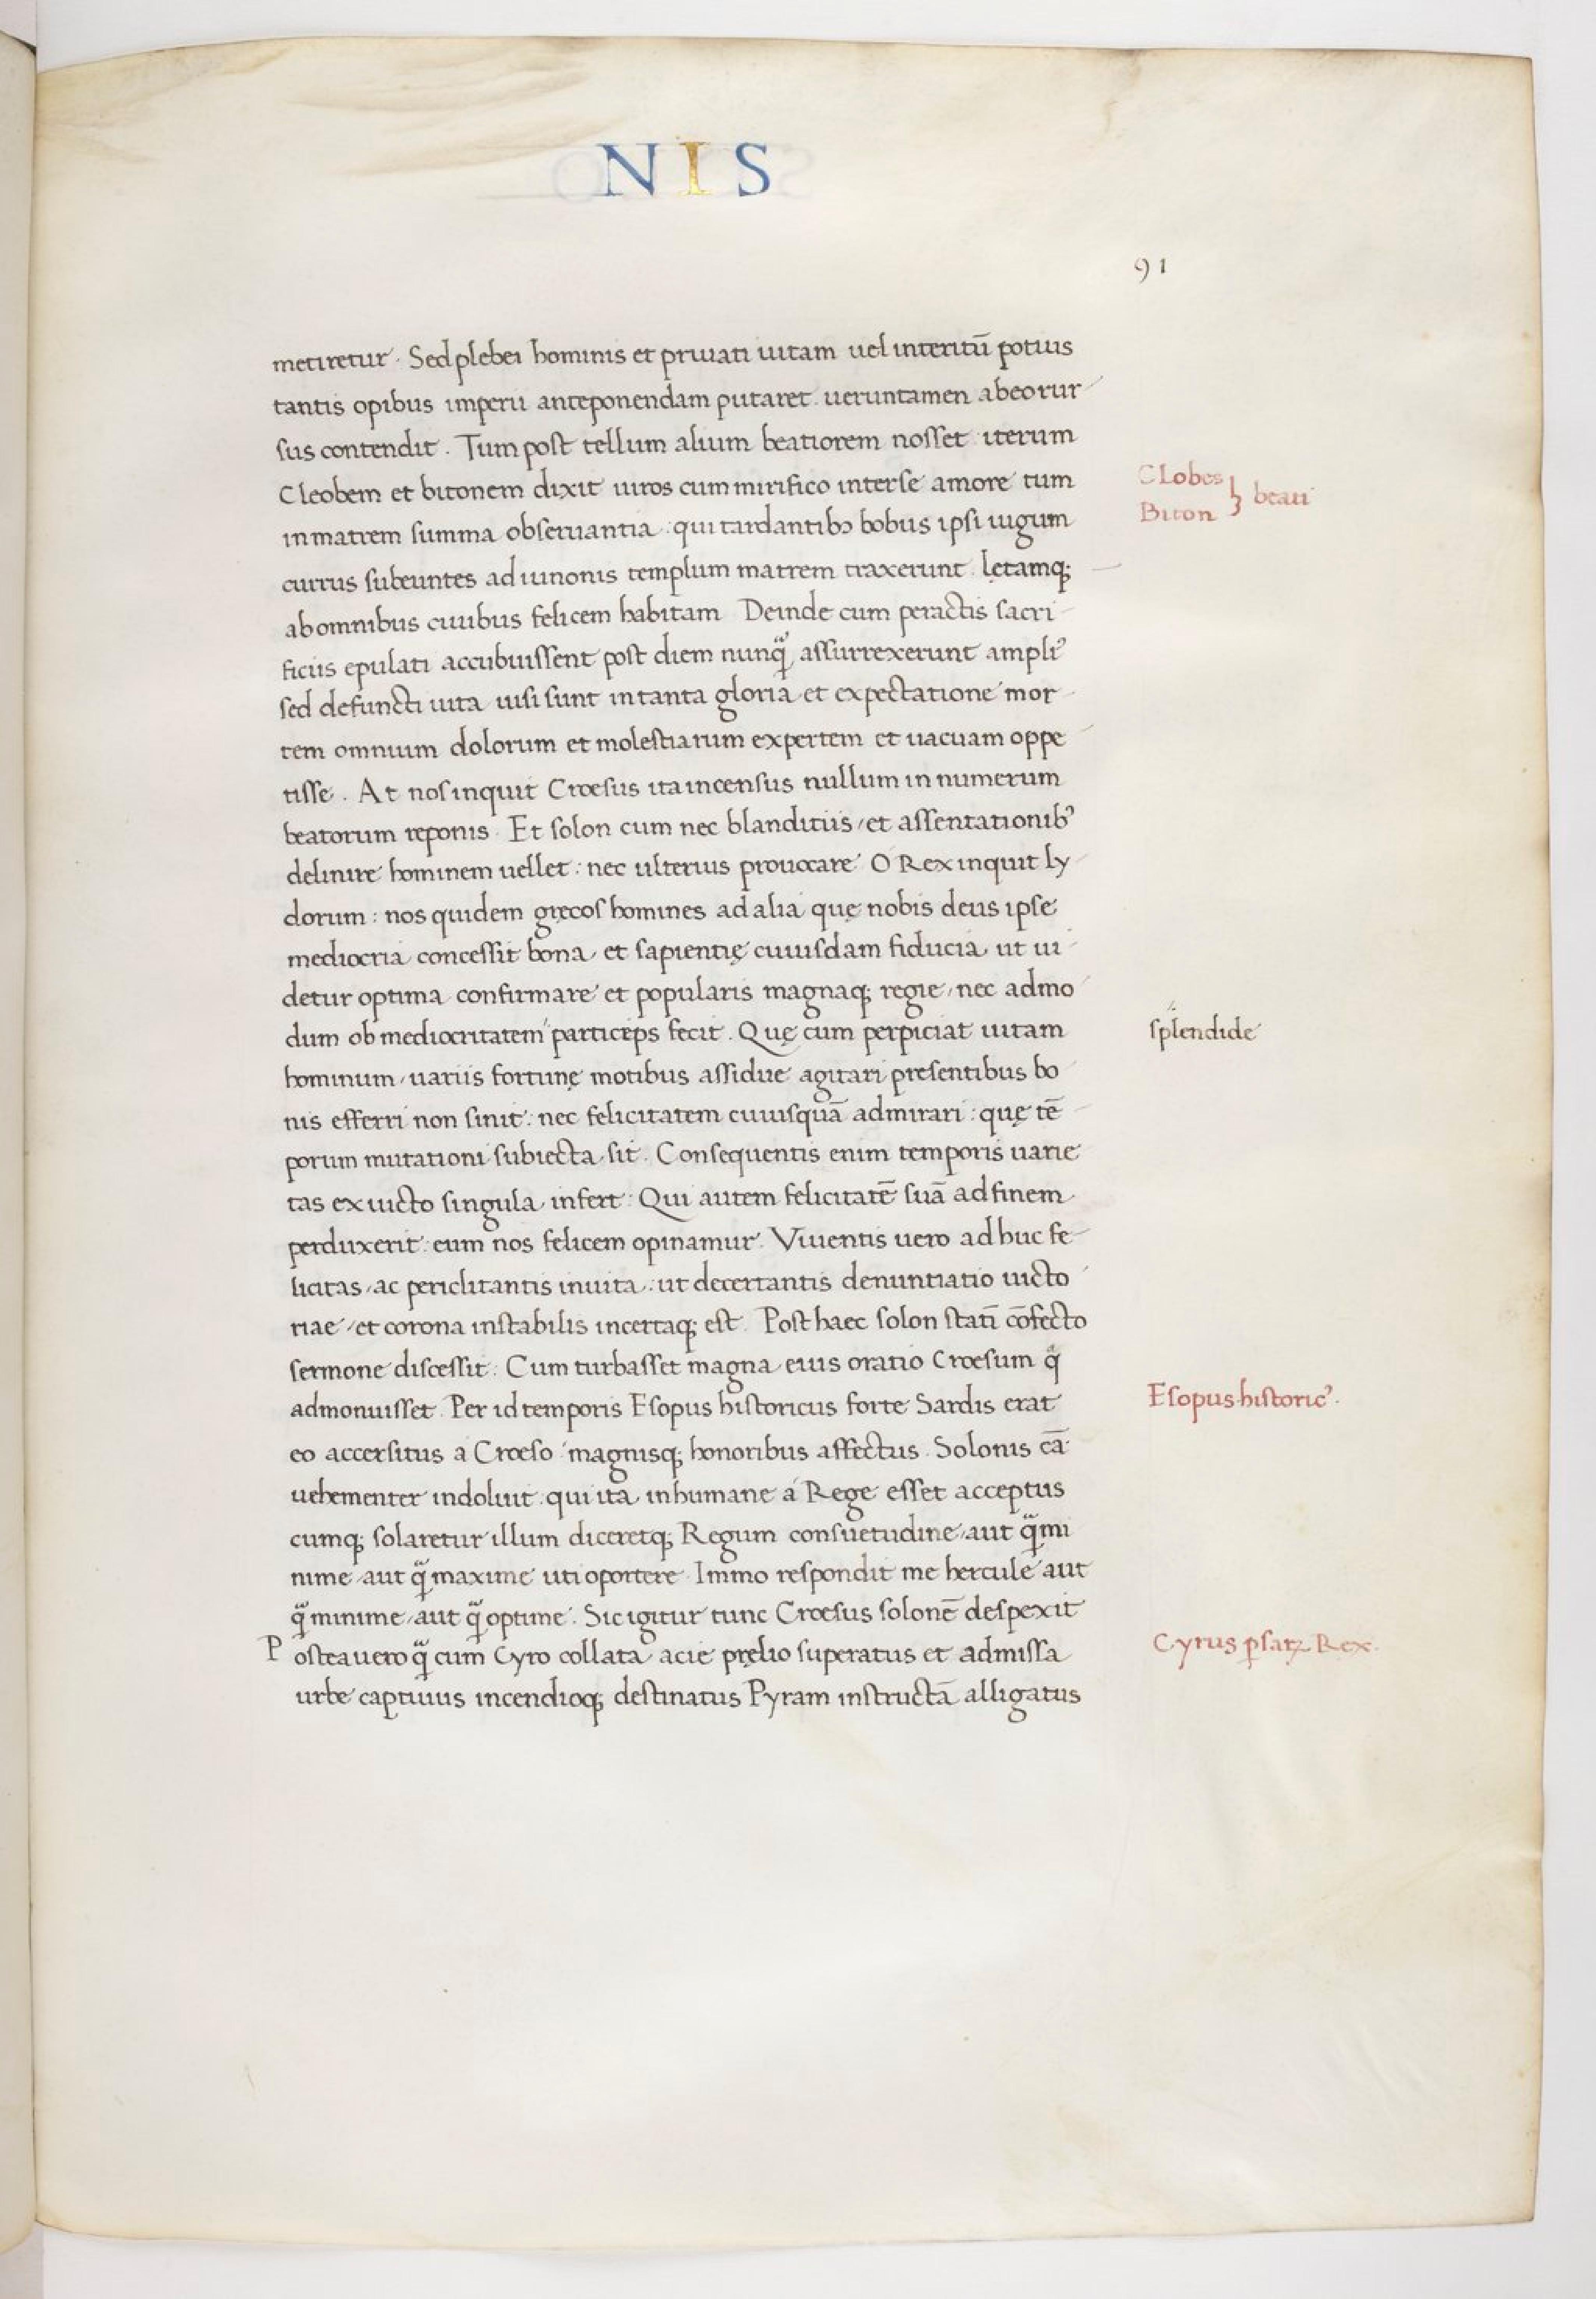 NIS
91
metiretur. Sed plebei hominis et priuati uitam uel interitū potius
tantis opibus imperii anteponendam putaret. ueruntamen ab eo rur
sus contendit. Tum post tellum alium beatiorem nosset: iterum
Cleobem et bitonem dixit uiros cum mirifico inter se amore tum
in matrem summa obseruantia: qui tardantibꝫ bobus ipsi iugum
currus subeuntes ad iunonis templum matrem traxerunt. lętamq;
ab omnibus ciuibus felicem habitam. Deinde cum peractis sacri
ficiis epulati accubuissent post diem nunqᷓ assurrexerunt ampliꝰ
sed defuncti uita uisi sunt in tanta gloria et expectatione mor
tem omnium dolorum et molestiarum expertem et uacuam oppe
tisse. At nos inquit Croesus ita incensus nullum in numerum
beatorum reponis. Et solon cum nec blanditiis, et assentationibꝰ
delinire hominem uellet: nec ulterius prouocare O Rex inquit ly
dorum: nos quidem gręcos homines ad alia quę nobis deus ipse
mediocria concessit bona, et sapientię cuiusdam fiducia ut ui
detur optima confirmare et popularis magnaq; regie, nec admo
dum ob mediocritatem particeps fecit. Quę cum perpiciat uitam
hominum, uariis fortunę motibus assidue agitari presentibus bo
nis efferri non sinit: nec felicitatem cuiusquā admirari: quę tē
porum mutationi subiecta sit. Consequentis enim temporis uarie
tas ex uicto singula infert: Qui autem felicitatē suā ad finem
perduxerit: eum nos felicem opinamur. Viuentis uero adhuc fe
licitas, ac periclitantis in uita: ut decertantis denuntiatio uicto
riae, et corona instabilis incertaq; est. Post haec solon statī cōfecto
sermone discessit. Cum turbasset magna eius oratio Croesum qᷓ
admonuisset. Per id temporis Esopus historicus forte Sardis erat
eo accersitus a Croeso magnisq; honoribus affectus. Solonis cā
uehementer indoluit: qui ita inhumane a Rege esset acceptus
cumq; solaretur illum diceretq; Regum consuetudine, aut qᷓ mi
nime, aut qᷓ maxime uti oportere. Immo respondit me hercule aut
qᷓ minime, aut qᷓ optime. Sic igitur tunc Croesus solonē despexit
Postea uero qᷓ cum Cyro collata acie pręlio superatus et admissa
urbe captiuus incendioq; destinatus Pyram instructā alligatus
CLobes
Biton } beati
splendide
Esopus historicꝰ.
Cyrus ꝑsaꝝ Rex.